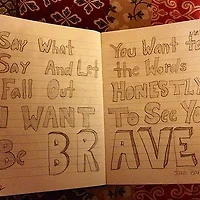 Say What You Want to
Say And Let the Words
Fall Out HONESTLY
I WANT To See You
Be BRAVE